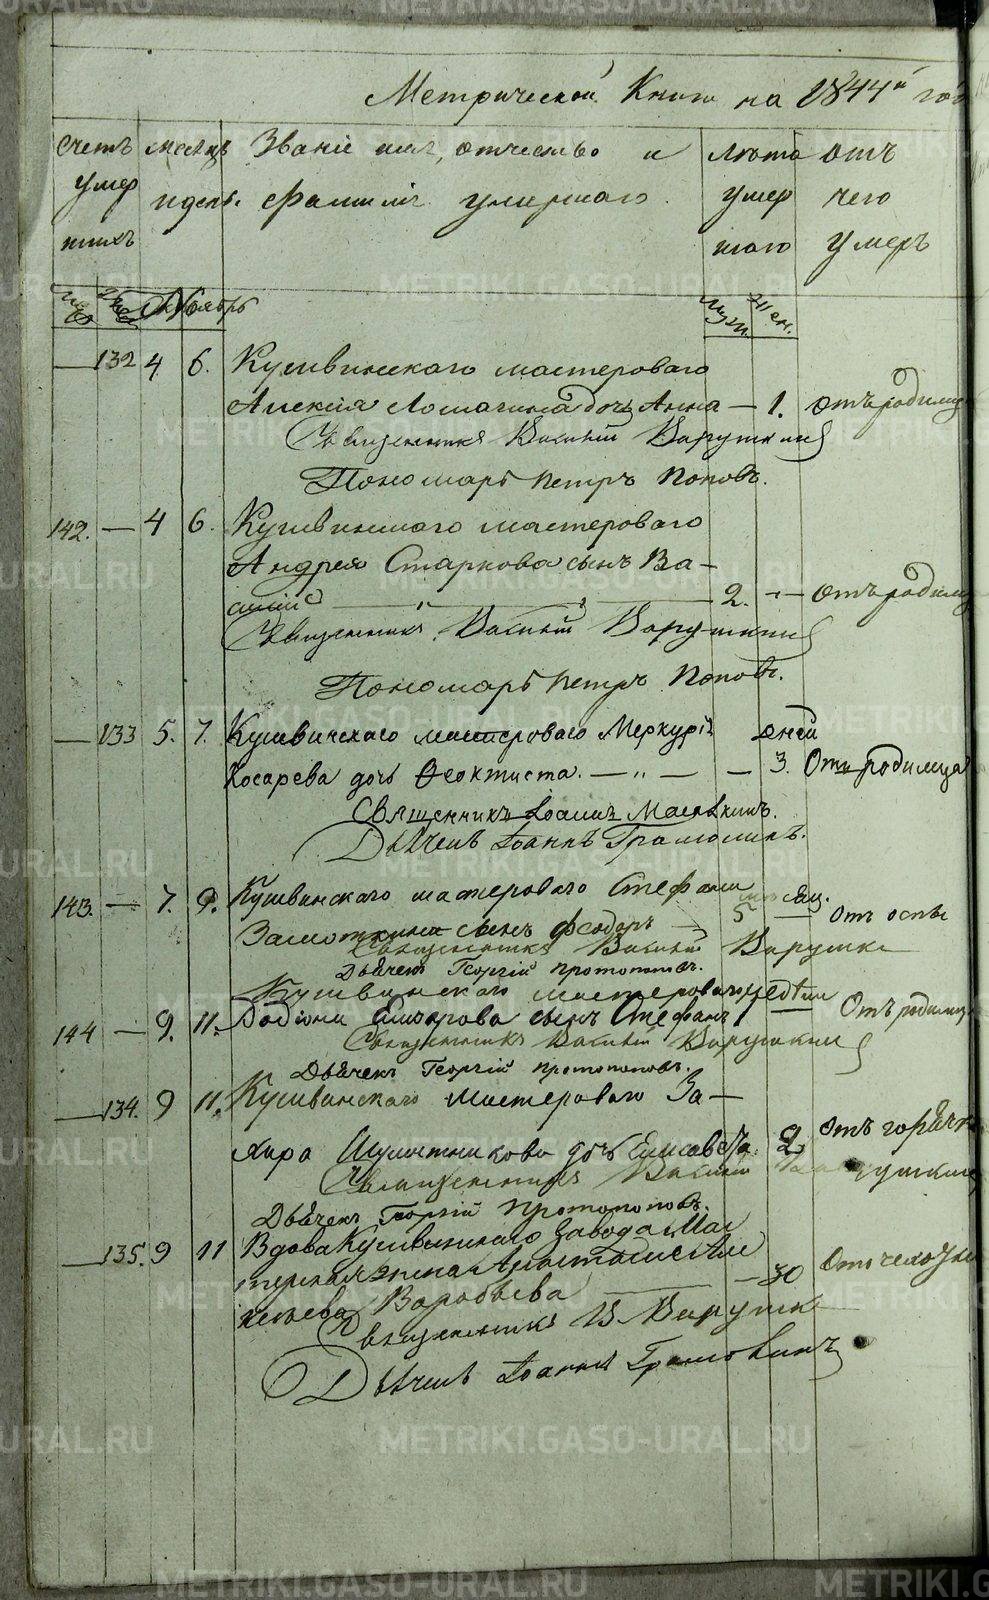 Метрической Книги на 1844й год
Счетъ месяцъ Званiе имя, отчество и лѣта отъ
умер и день. Фамилiя умершаго. умер чего
шихъ шаго умеръ
муж жен Ноябрь муж. жен.
— 132 4 6. Кушвинскаго мастероваго
Алексiя Ломагина дочь Анна — 1. отъ родимца
Священникъ Василiй Варушкинъ
Пономарь Петръ Поповъ.
142. — 4 6. Кушвинскаго мастероваго
Андрея Старкова сынъ Ва-
силiй 2. — отъ родимца
Священникъ Василiй Варушкинъ
Пономарь Петръ Поповъ.
— 133 5. 7. Кушвинскаго мастероваго Меркурiя дней
Косарева дочь Ѳеоктиста. — „ — — 3. Отъ родимца
Священникъ Iоаннъ
Дьячекъ Iоаннъ Грамолинъ.
143. — 7. 9. Кушвинскаго мастероваго Стефана месяц.
сынъ Федоръ — 5 — Отъ оспы
Священникъ Василiй Варушки
Дьячекъ Георгiй Протопоповъ.
Кушвинскаго мастероваго недѣли
144 — 9. 11. Родiона сынъ Стефанъ 1 — Отъ родимца
Священникъ Василiй Варушкин
Дьячекъ Георгiй Протопоповъ.
— 134. 9 11. Кушвинскаго мастероваго За-
хара дочь Елисавета 2 отъ горячки
Священникъ Василiй Варушкинъ
Дьячекъ Георгiй Протопоповъ.
— 135. 9 11 Вдова Кушвинскаго завода Мас
терская жена Але
ксеева Воробьева — 30 Отъ чехотки
Священникъ В. Варушк
Дьячекъ Iоаннъ
METRIKI.GASO-URAL.RU